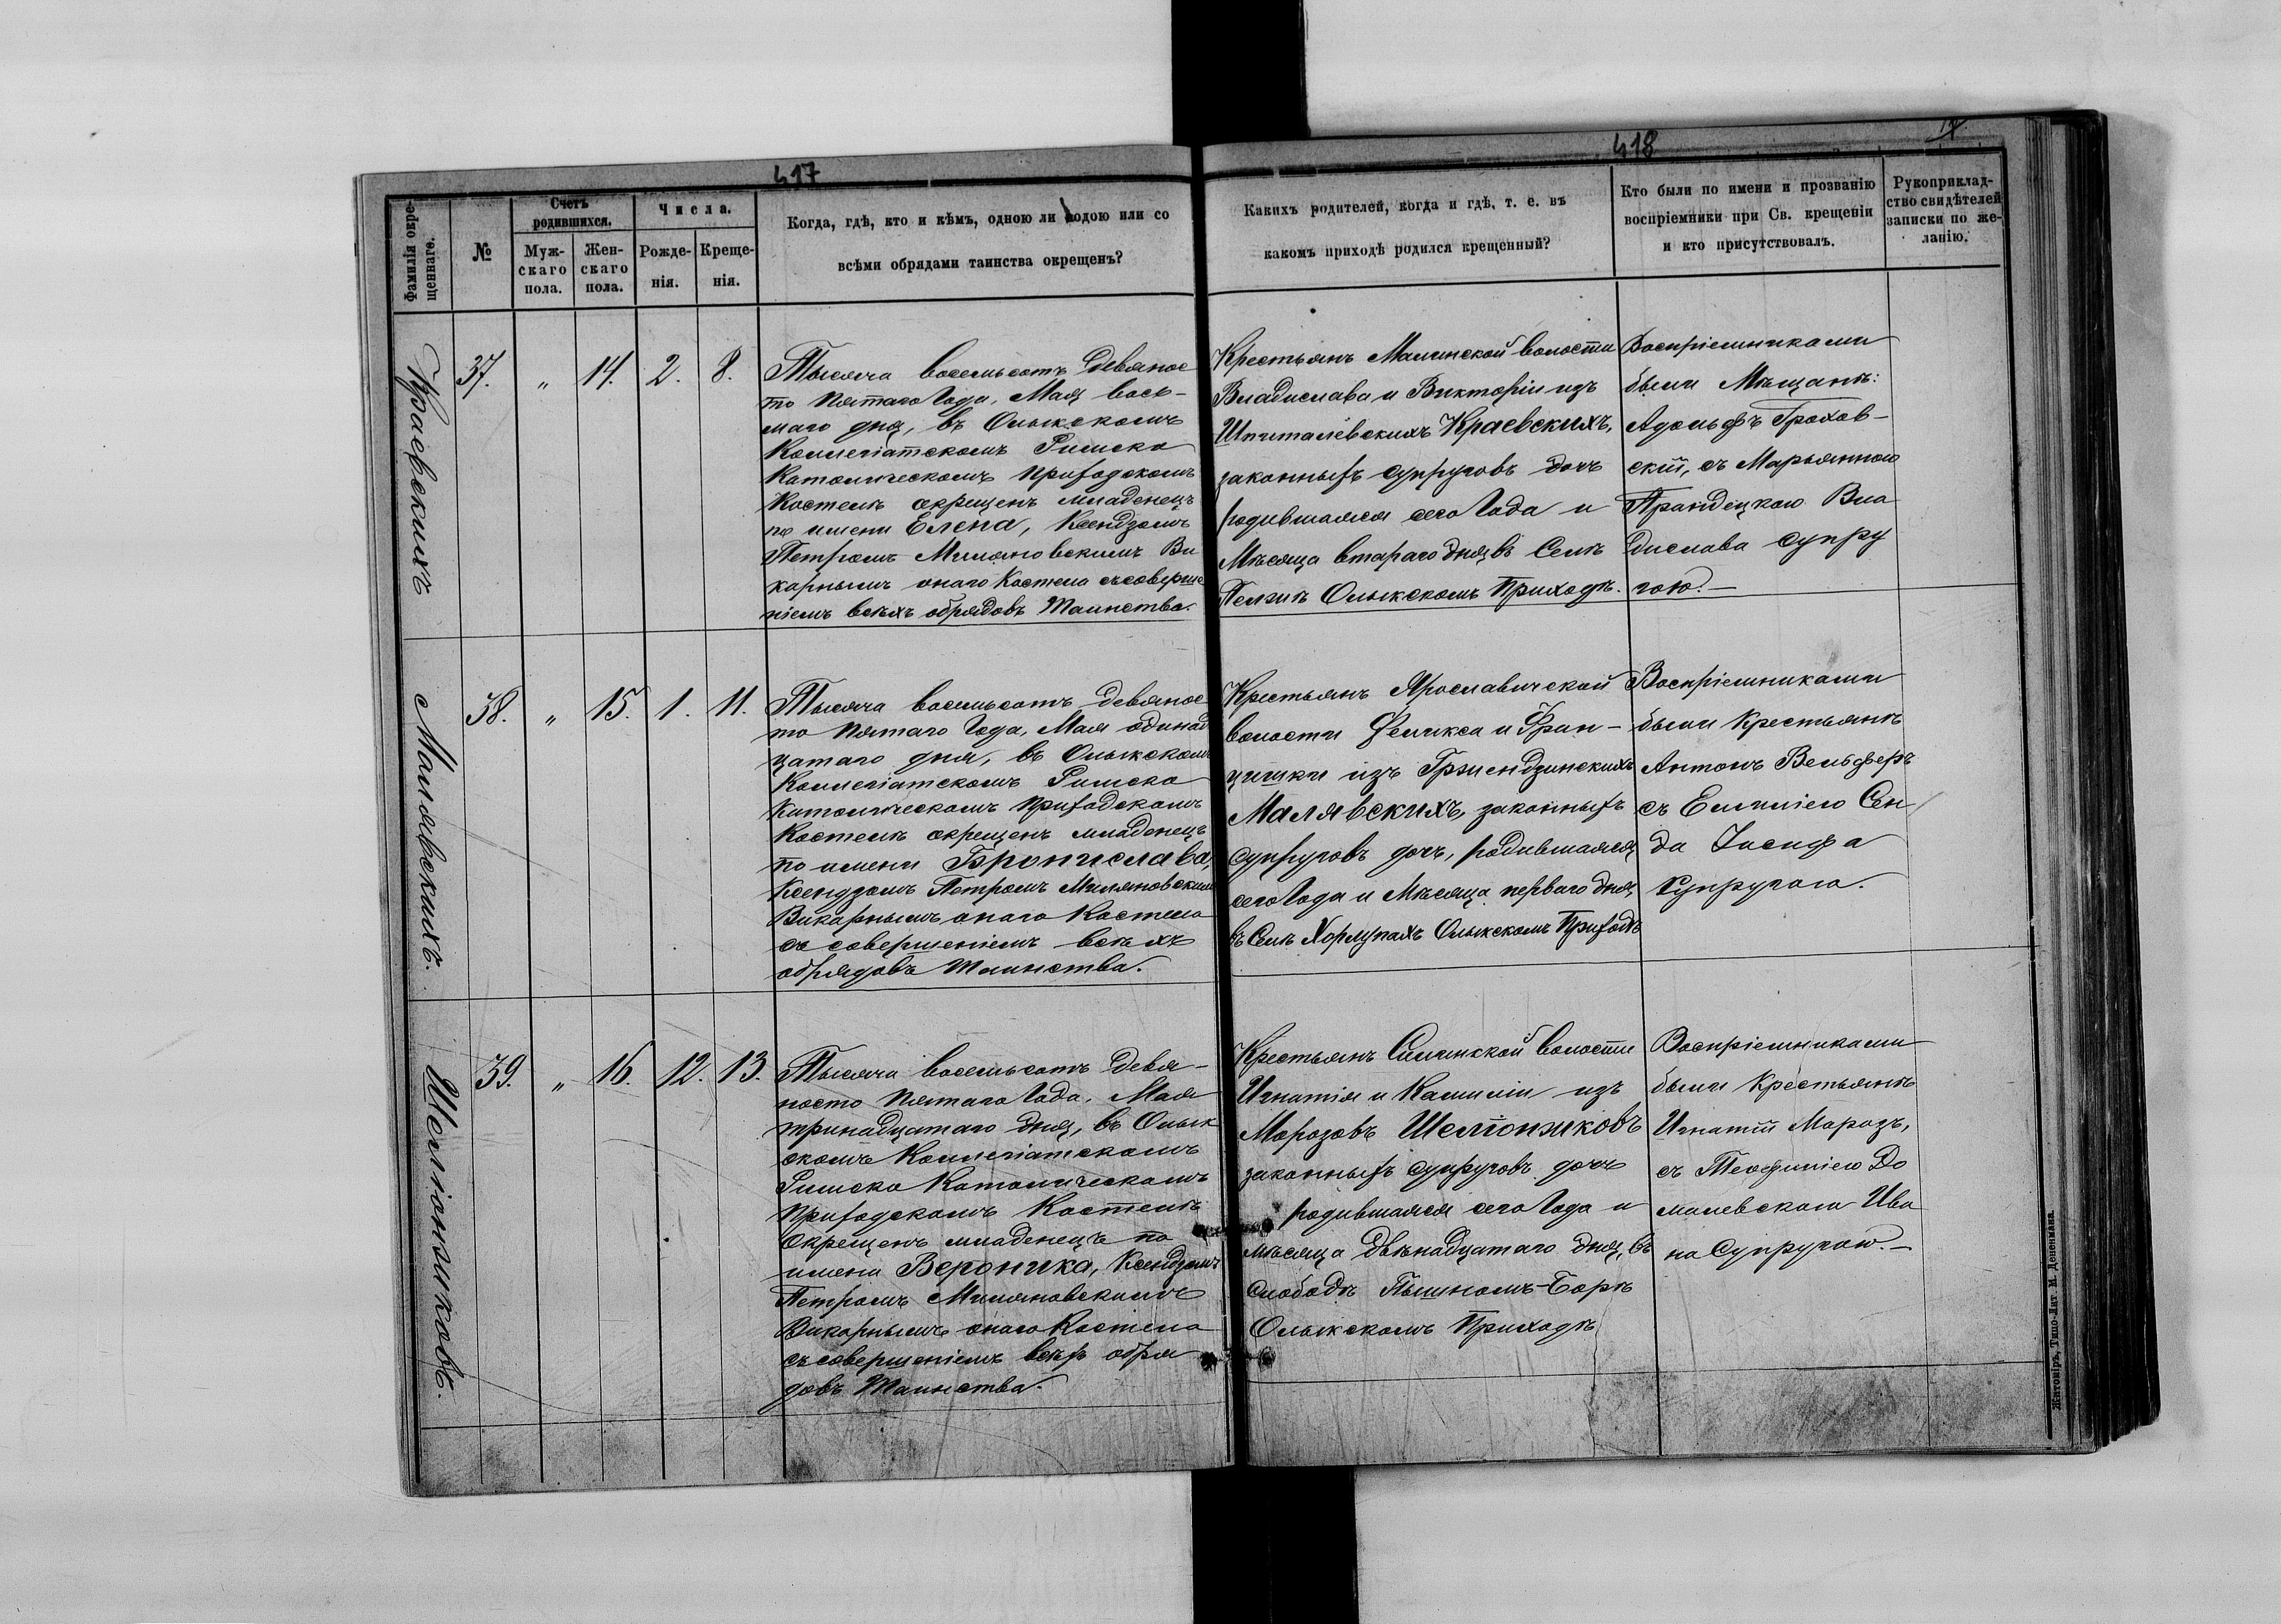 417
Фамилія окре-
щеннаго.
№
Счетъ
родившихся.
Муж-
скаго
пола.
Жен-
скаго
пола.
Числа.
Рожде-
нія.
Креще-
нія.
Когда, гдѣ, кто и кѣмъ, одною ли водою или со
всѣми обрядами таинства окрещенъ?
Краевскихъ
37.
„
14.
2.
8.
Тысяча восемьсотъ девянос
то пятаго Года, Мая вось-
маго дня, въ Олыкскомъ
Коллегіатскомъ Римско
Католическомъ Приходскомъ
Костелѣ окрещенъ младенецъ
по имени Елена, Ксендзомъ
Петромъ Миляновскимъ Ви
карнымъ онаго Костела съ соверше
ніемъ всѣхъ обрядовъ Таинства.
Малявскихъ.
38.
„
15.
1.
11.
Тысяча восемьсотъ девянос
то пятаго Года, Мая одинад
цатаго дня, въ Олыкскомъ
Коллегіатскомъ Римско
Католическомъ Приходскомъ
Костелѣ окрещенъ младенецъ
по имени Бронислава,
Ксендзомъ Петромъ Миляновскимъ
Викарнымъ онаго Костела
съ совершеніемъ всѣхъ
обрядовъ Таинства.
Шеліонжиковъ.
39.
„
16.
12.
13.
Тысяча восемьсотъ девя-
носто пятаго Года, Мая
тринадцатаго дня, въ Олык
скомъ Коллегіатскомъ
Римско Католическомъ
Приходскомъ Костелѣ
Окрещенъ младенецъ по
имени Вероника, Ксендзомъ
Петромъ Миляновскимъ
Викарнымъ онаго Костела
съ совершеніемъ всѣхъ обря
довъ Таинства.
418
Какихъ родителей, когда и гдѣ, т. е. въ
какомъ приходѣ родился крещенный?
Кто были по имени и прозванію
воспріемники при Св. крещеніи
и кто присутствовалъ.
Рукоприклад-
ство свидѣтелей
записки по же-
ланію.
Крестьянъ Малинской волости
Владислава и Викторіи изъ
Шпиталевскихъ Краевскихъ,
законныхъ супруговъ дочь
родившаяся сего Года и
Мѣсяца втараго дня въ Селѣ
Пелжѣ Олыкскомъ Приходѣ.
Воспріемниками
были Мѣщанѣ:
Адольфъ Грохов-
скій, съ Марьянною
Прандецкою Вла
дислава супру
гою.-
Крестьянъ Ярославичской
волости Феликса и Фран-
цишки изъ Гржендзинскихъ
Малявскихъ, законныхъ
Супруговъ дочь, родившаяся
сего Года и Мѣсяца перваго дня,
въ Селѣ Хорлупахъ Олыкскомъ Приходѣ
Воспріемниками
были Крестьянѣ
Антонъ Вельферъ
съ Емиліею Сен
да Іосифа
Супругою.
Крестьянъ Силинской волости
Игнатія и Камиліи изъ
Морозовъ Шеліонжиковъ
законныхъ супруговъ дочь
родившаяся сего Года и
мѣсяца двѣнадцатаго дня, въ
Слободѣ Пышномъ-Борѣ
Олыкскомъ Приходѣ
Воспріемниками
были Крестьянѣ
Игнатій Морозъ,
съ Теофиліею До
малевскою Ива
на Супругою.-
Житоміръ, Типо-Лит М. Дененмана.